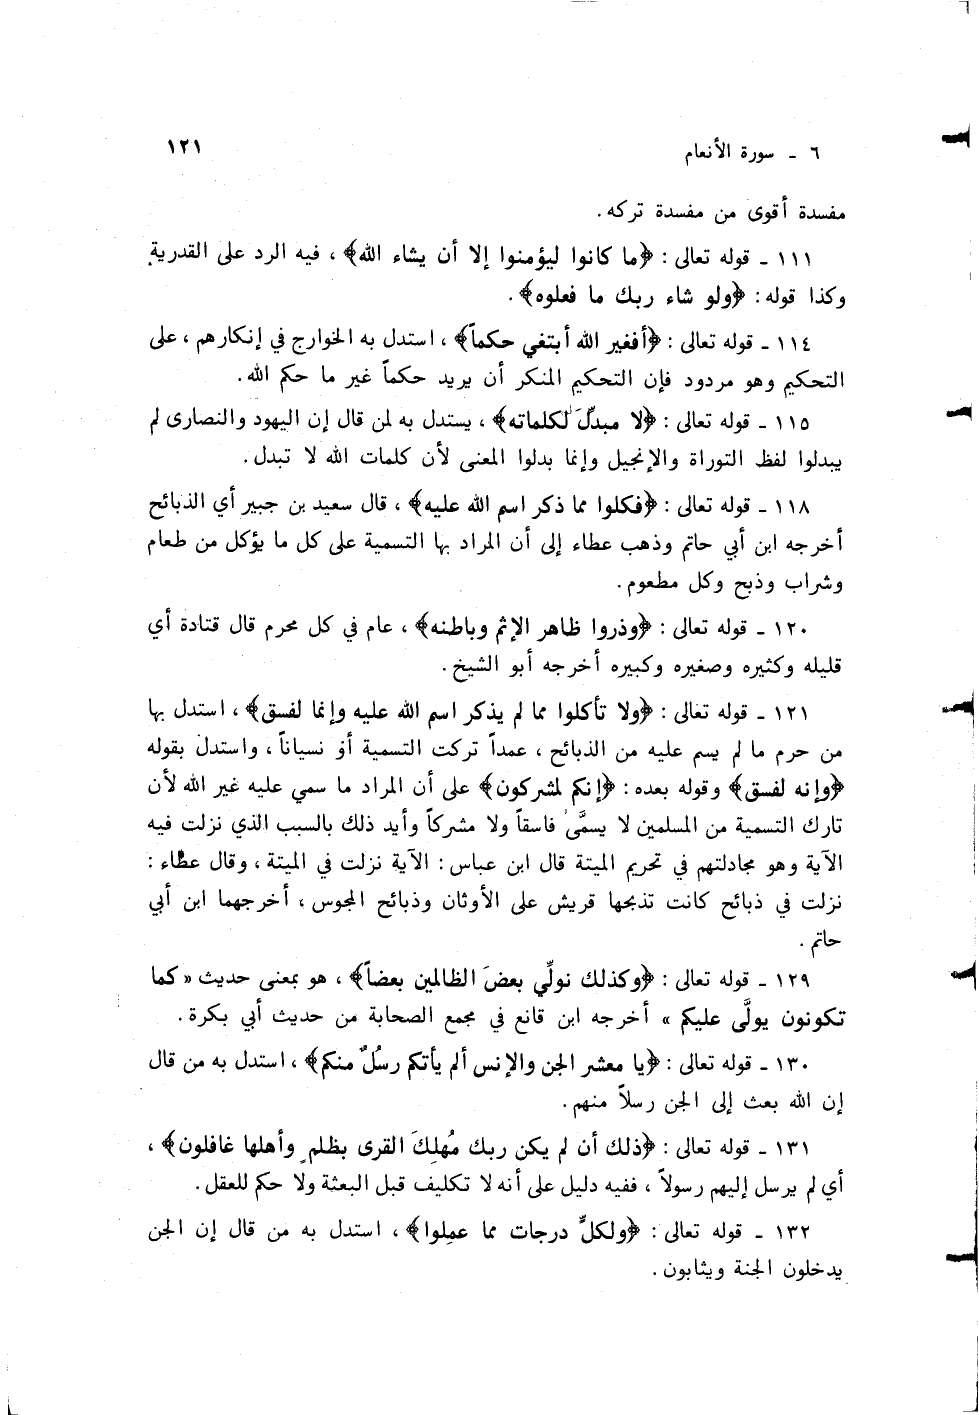 ٦ ـ سورة الأنعام ١٢١
مفسدة أقوى من مفسدة تركه .
١١١ ـ قوله تعالى : ﴿ما كانوا ليؤمنوا إلا أن يشاء الله﴾ ، فيه الرد على القدرية
وكذا قوله : ﴿ولو شاء ربك ما فعلوه﴾ .
١١٤ ـ قوله تعالى : ﴿أفغير الله أبتغي حكماً﴾ ، استدل به الخوارج في إنكارهم ، على
التحكيم وهو مردود فإن التحكيم المنكر أن يريد حكماً غير ما حكم الله .
١١٥ ـ قوله تعالى : ﴿لا مبدِّلَ لكلماته﴾ ، يستدل به لمن قال إن اليهود والنصارى لم
يبدلوا لفظ التوراة والإنجيل وإنما بدلوا المعنى لأن كلمات الله لا تبدل .
١١٨ ـ قوله تعالى : ﴿فكلوا مما ذكر اسم الله عليه﴾ ، قال سعيد بن جبير أي الذبائح
أخرجه ابن أبي حاتم وذهب عطاء إلى أن المراد بها التسمية على كل ما يؤكل من طعام
وشراب وذبح وكل مطعوم .
١٢٠ ـ قوله تعالى : ﴿وذروا ظاهر الإثم وباطنه﴾ ، عام في كل محرم قال قتادة أي
قليله وكثيره وصغيره وكبيره أخرجه أبو الشيخ .
١٢١ ـ قوله تعالى : ﴿ولا تأكلوا مما لم يذكر اسم الله عليه وإنما لفسق﴾ ، استدل بها
من حرم ما لم يسم عليه من الذبائح ، عمداً تركت التسمية أو نسياناً ، واستدل بقوله
﴿وإنه لفسق﴾ وقوله بعده : ﴿إنكم لمشركون﴾ على أن المراد ما سمي عليه غير الله لأن
تارك التسمية من المسلمين لا يسمَّى فاسقاً ولا مشركاً وأيد ذلك بالسبب الذي نزلت فيه
الآية وهو مجادلتهم في تحريم الميتة قال ابن عباس : الآية نزلت في الميتة ، وقال عطاء :
نزلت في ذبائح كانت تذبحها قريش على الأوثان وذبائح المجوس ، أخرجهما ابن أبي
حاتم .
١٢٩ ـ قوله تعالى : ﴿وكذلك نولِّي بعضَ الظالمين بعضاً﴾ ، هو بمعنى حديث « كما
تكونون يولَّى عليكم » أخرجه ابن قانع في مجمع الصحابة من حديث أبي بكرة .
١٣٠ ـ قوله تعالى : ﴿يا معشر الجن والإنس ألم يأتكم رسُلٌ منكم﴾ ، استدل به من قال
إن الله بعث إلى الجن رسلاً منهم .
١٣١ ـ قوله تعالى : ﴿ذلك أن لم يكن ربك مُهلِكَ القرى بظلمٍ وأهلها غافلون﴾ ،
أي لم يرسل إليهم رسولاً ، ففيه دليل على أنه لا تكليف قبل البعثة ولا حكم للعقل .
١٣٢ ـ قوله تعالى : ﴿ولكلٍّ درجات مما عملوا﴾ ، استدل به من قال إن الجن
يدخلون الجنة ويثابون .